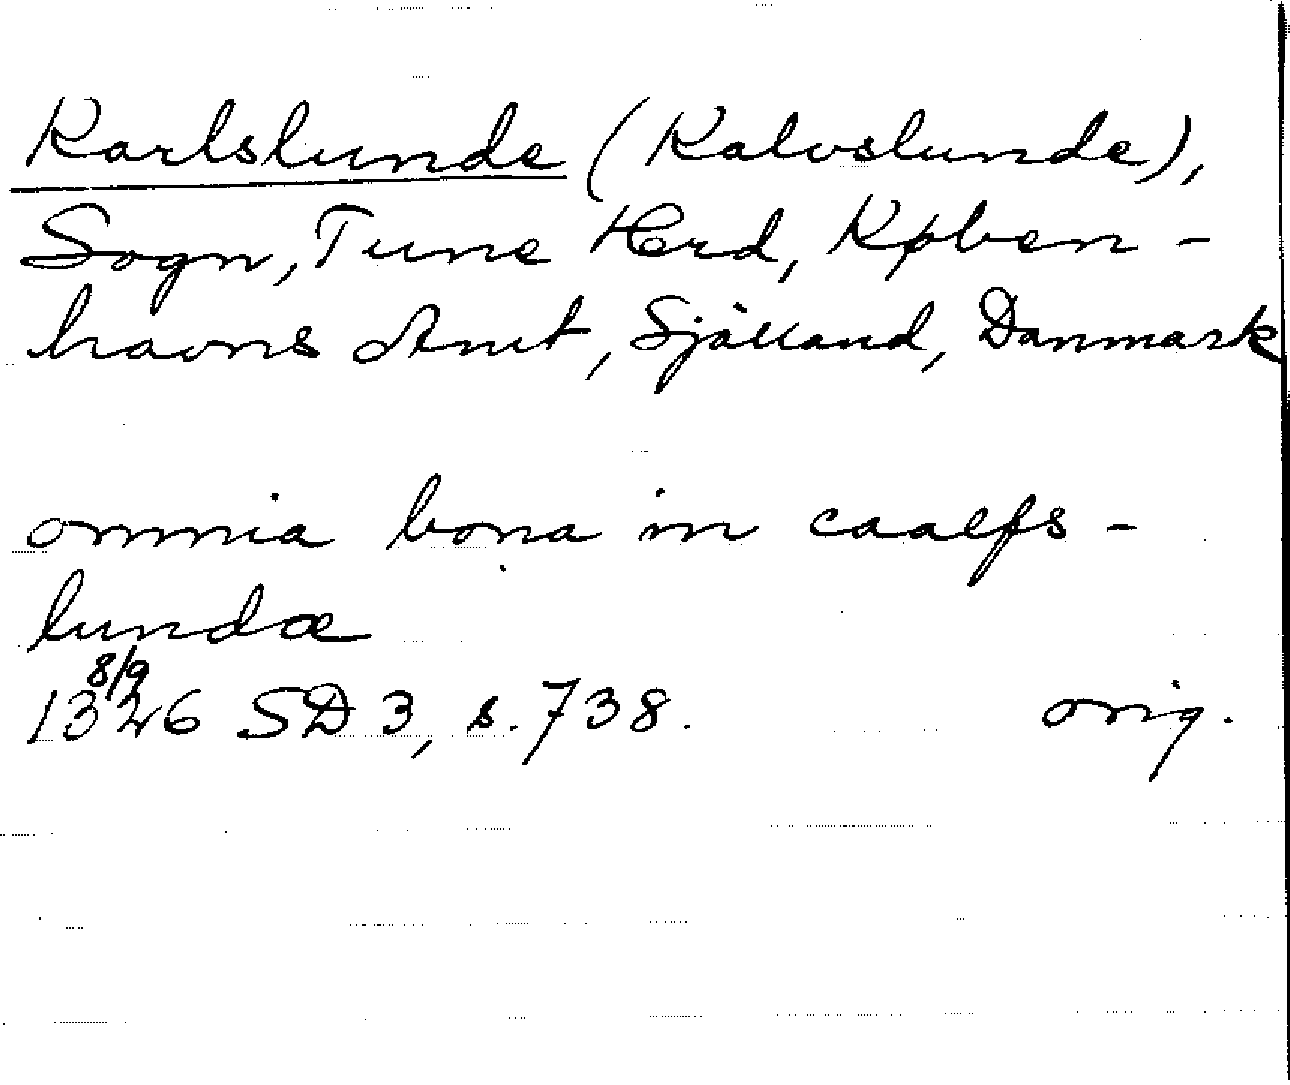 Karlslunde (Kalvslunde),
Sogn, Tune Herd, Køben-
havns Amt, Själland, Danmark
omnia bona in caalfs-
lundæ
8/9
1326 SD 3, s. 738. orig.